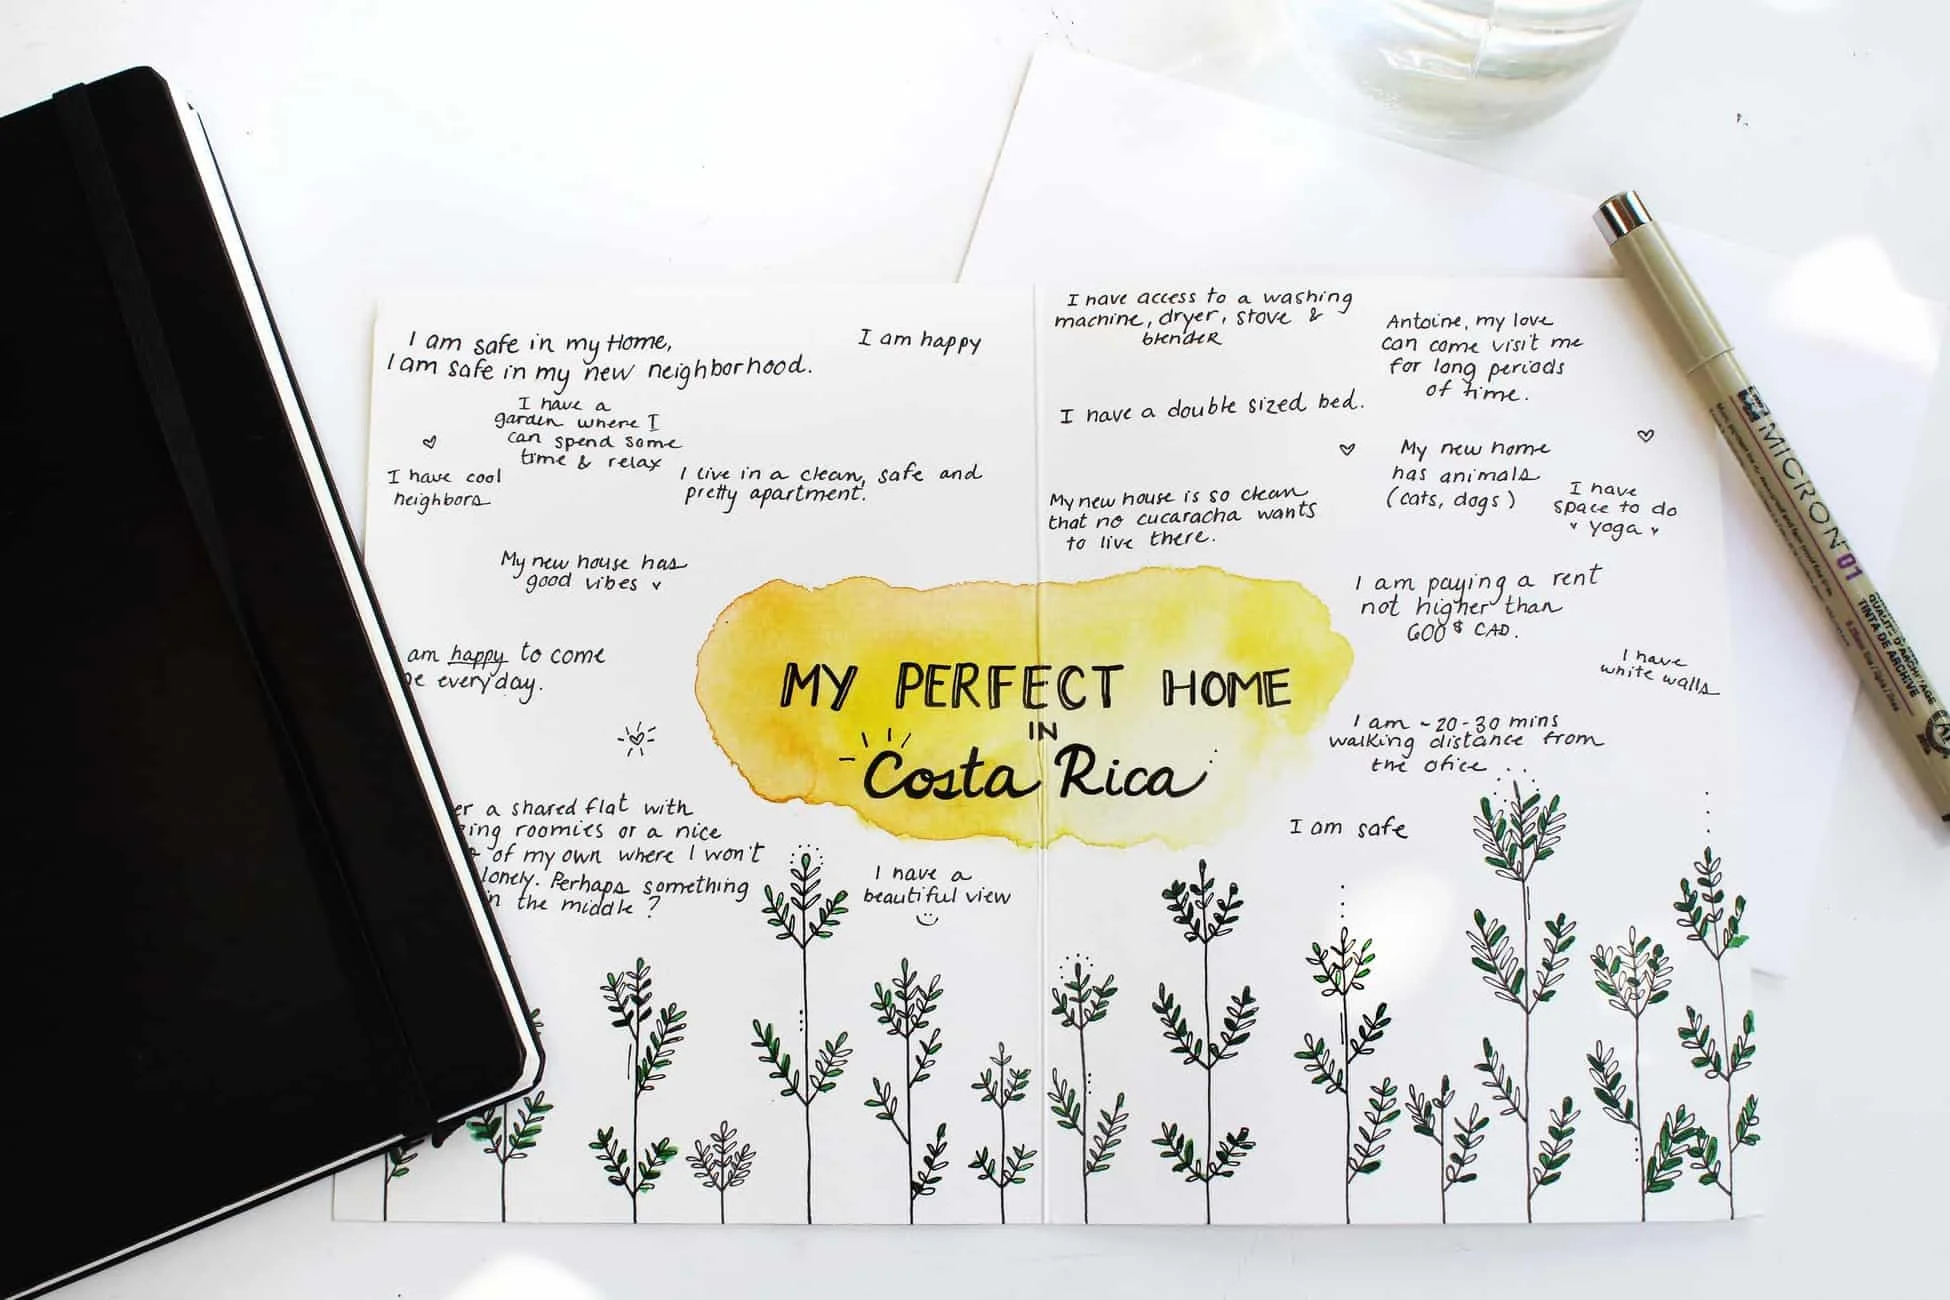 I am safe in my Home,
I am safe in my new neighborhood.
I am happy
I have a
garden where I
can spend some
time & relax
I have cool
neighbors
I live in a clean, safe and
pretty apartment.
My new house has
good vibes
am happy to come
everyday.
er a shared flat with
ing roomies or a nice
of my own where I won't
lonely. Perhaps something
in the middle ?
I have a
beautiful view
MY PERFECT HOME
IN
Costa Rica
I have access to a washing
machine, dryer, stove &
blender
Antoine, my love
can come visit me
for long periods
of time.
I have a double sized bed.
My new home
has animals
(cats, dogs)
I have
space to do
yoga
My new house is so clean
that no cucaracha wants
to live there.
I am paying a rent
not higher than
600$ CAD.
I have
white walls
I am ~20-30 mins
walking distance from
the ofice
I am safe
MICRON 01
QUALITÉ D'ARCHIVAGE
TINTA DE ARCHIVE